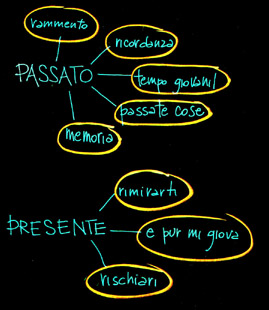 rammento
ricordanza
PASSATO
tempo giovanil
passate cose
memoria
rimirarti
PRESENTE
e pur mi giova
rischiari